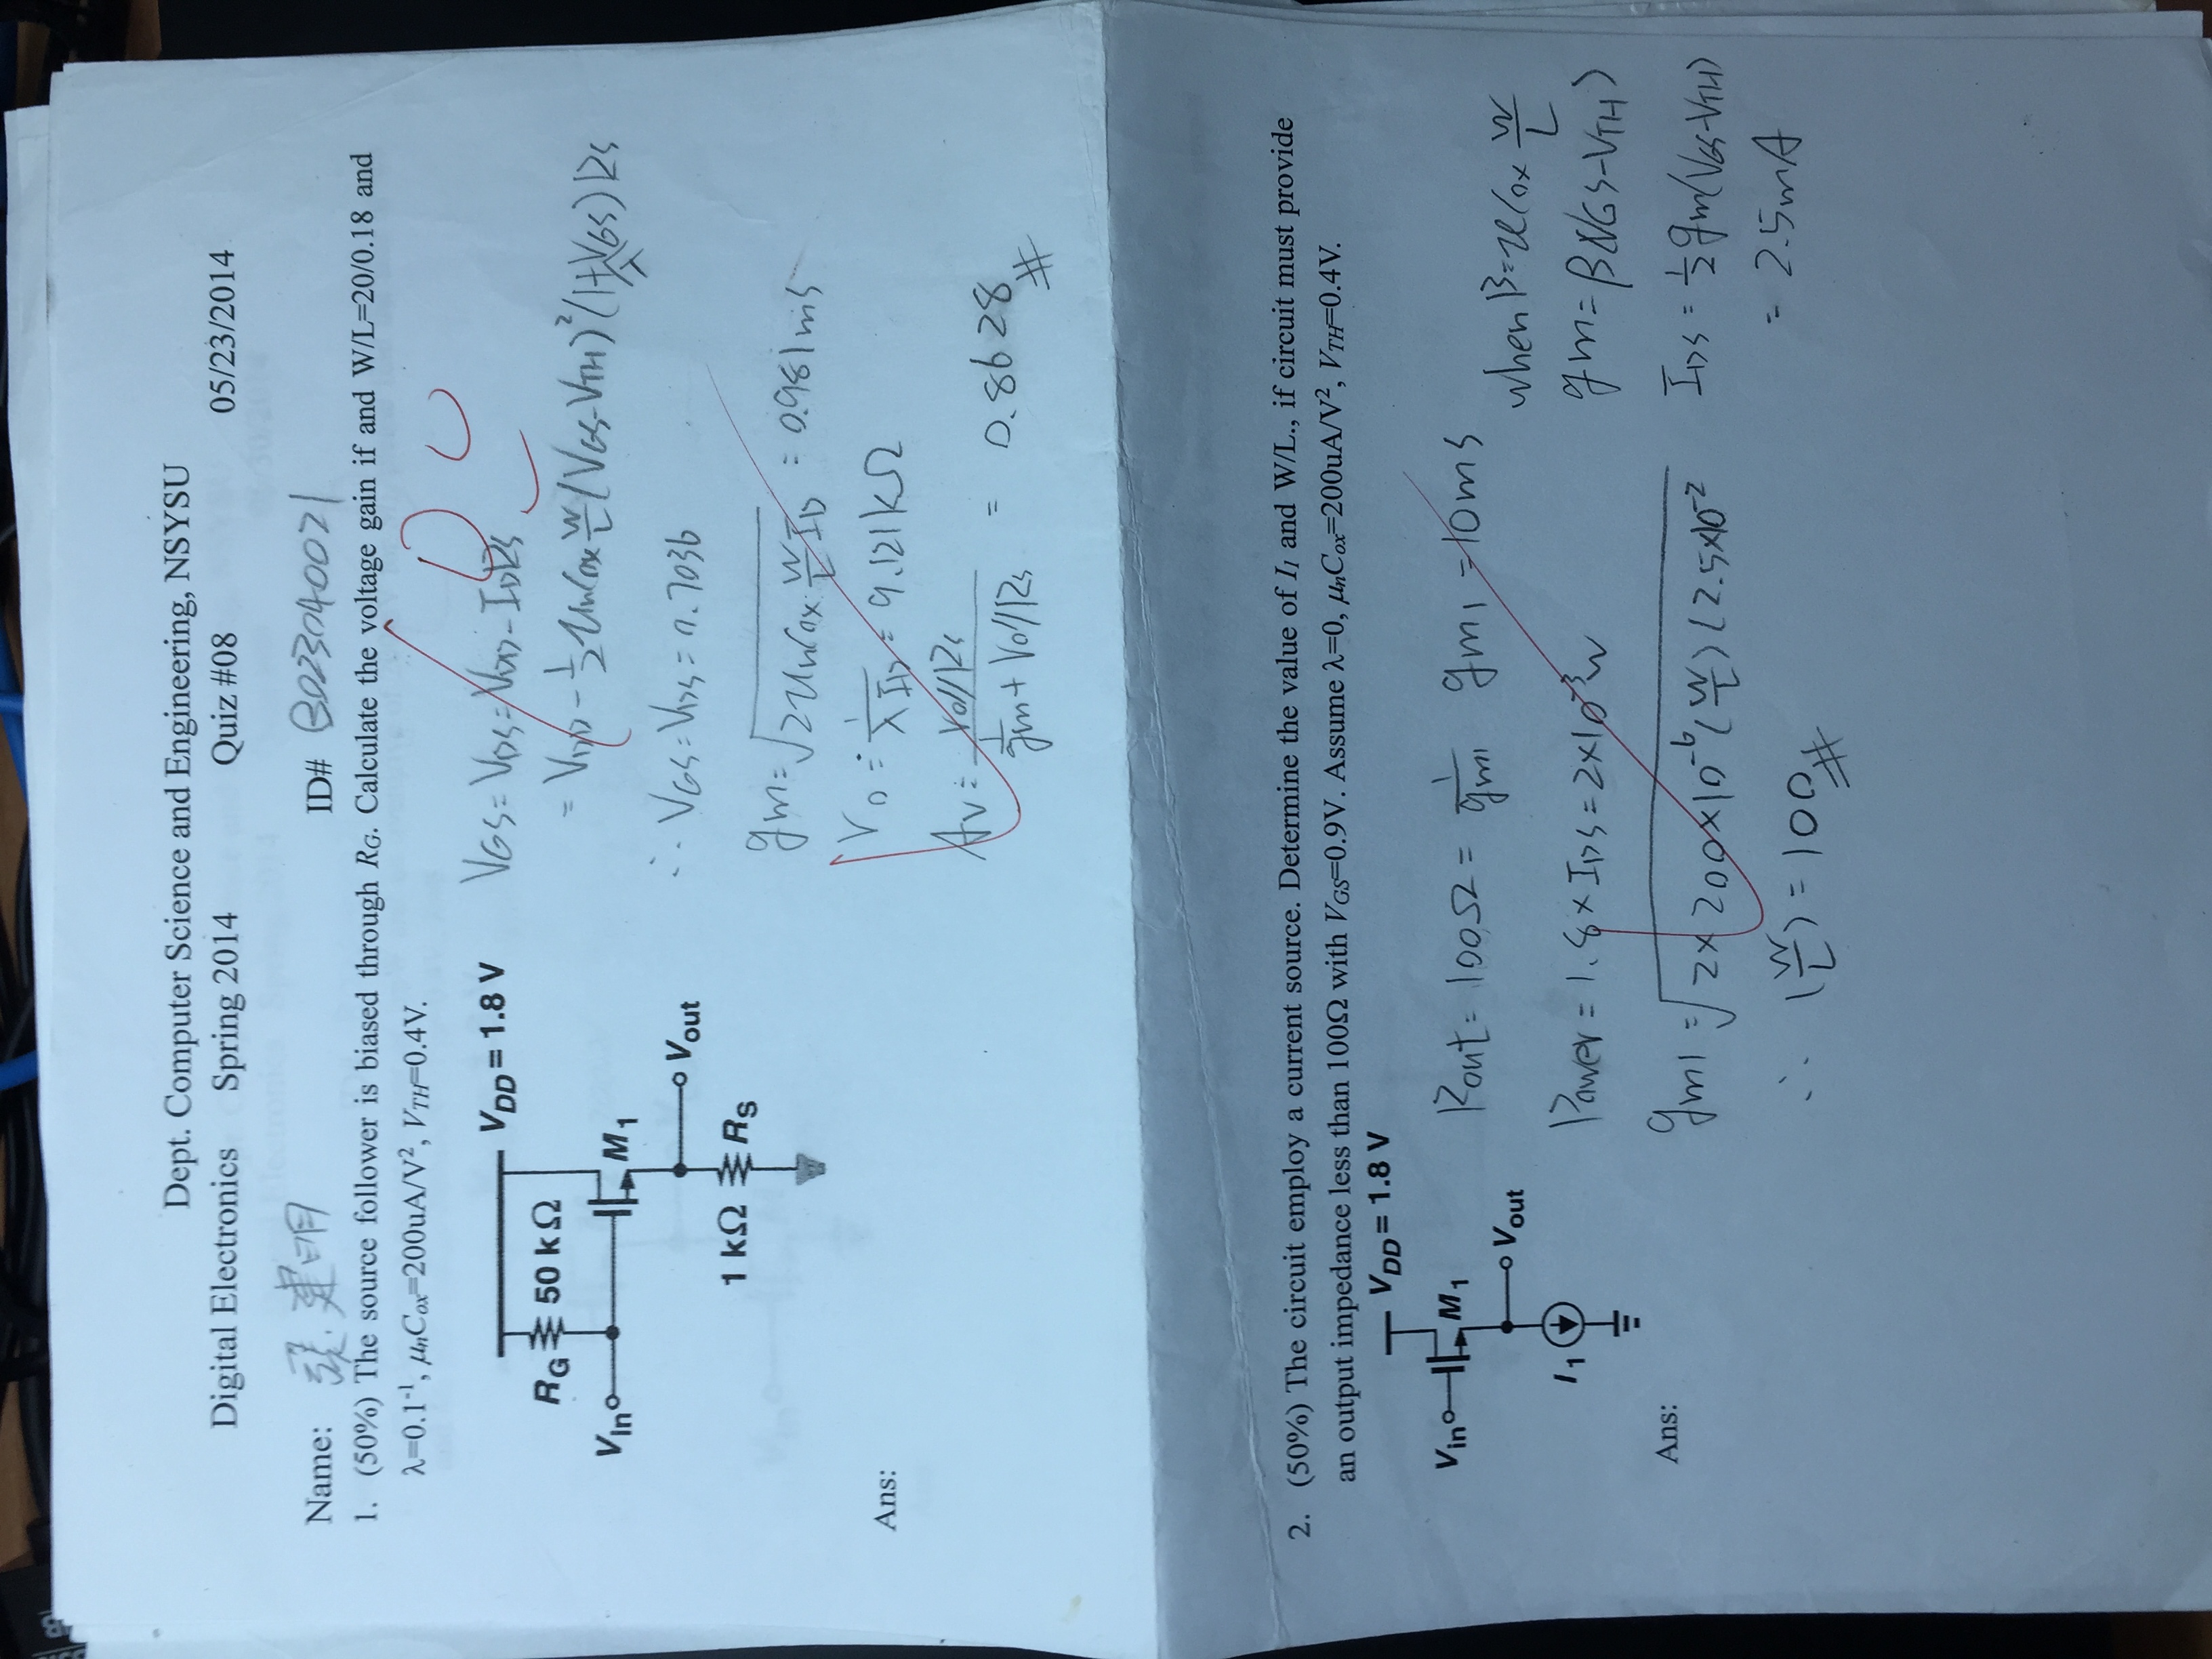 Dept. Computer Science and Engineering, NSYSU
Digital Electronics Spring 2014 Quiz #08 05/23/2014
Name: 張建明 ID# B023040021
1. (50%) The source follower is biased through RG. Calculate the voltage gain if and W/L=20/0.18 and
λ=0.1⁻¹, μnCox=200uA/V², VTH=0.4V.
VDD = 1.8 V
RG 50 kΩ
Vin M1
Vout
1 kΩ RS
VGS = VDS = VDD - IDRS
= VDD - 1/2 UnCox W/L (VGS-VTH)² (1+λVGS) RS
∴ VGS = VDS = 0.7036
gm = √(2UnCox W/L ID) = 0.981ms
ro = 1/λID = 9.121kΩ
Av = ro//Rs / (1/gm + ro//Rs) = 0.8628 #
Ans:
2. (50%) The circuit employ a current source. Determine the value of I1 and W/L., if circuit must provide
an output impedance less than 100Ω with VGS=0.9V. Assume λ=0, μnCox=200uA/V², VTH=0.4V.
VDD = 1.8 V
Vin M1
Vout
I1
Ans:
Rout = 100Ω = 1/gm1 gm1 = 10ms
Power = 1.8 x IDS = 2x10⁻³w
gm1 = √(2x200x10⁻⁶(W/L)(2.5x10⁻²
∴ (W/L) = 100 #
when β = UCox W/L
gm = β(VGS-VTH)
IDS = 1/2 gm(VGS-VTH)
= 2.5mA